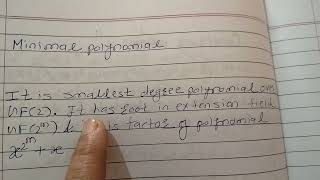 Minimal polynomial
It is smallest degree polynomial over
GF(2). It has root in extension field
GF(2^m) & is factor of polynomial
x^{2^m} + x